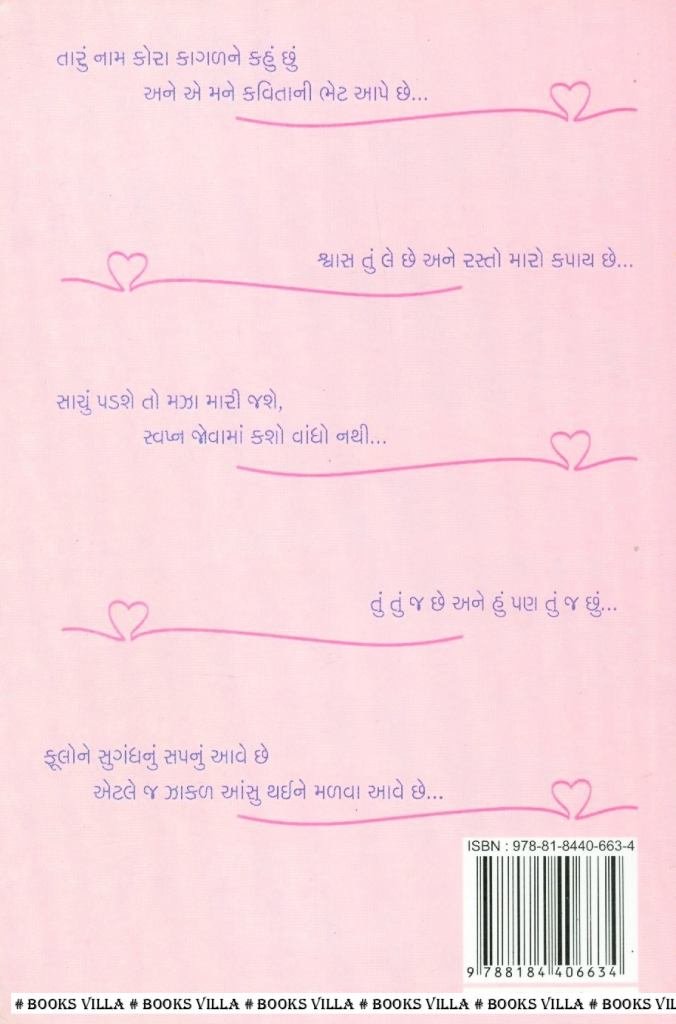 તારું નામ કોરા કાગળને કહું છું
અને એ મને કવિતાની ભેટ આપે છે...
શ્વાસ તું લે છે અને રસ્તો મારો કપાય છે...
સાચું પડશે તો મઝા મારી જશે,
સ્વપ્ન જોવામાં કશો વાંધો નથી...
તું તું જ છે અને હું પણ તું જ છું...
ફૂલોને સુગંધનું સપનું આવે છે
એટલે જ ઝાકળ આંસુ થઈને મળવા આવે છે...
ISBN : 978-81-8440-663-4
9 788184 406634
# BOOKS VILLA # BOOKS VILLA # BOOKS VILLA # BOOKS VILLA # BOOKS VILLA # BOOKS VIL